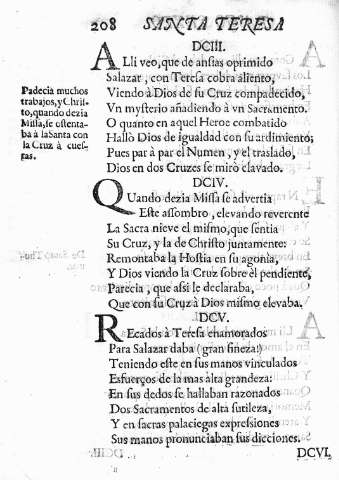 208 SANTA TERESA
DCIII.
ALli veo, que de ansias oprimido
Salazar, con Teresa cobra aliento,
Viendo à Dios de su Cruz compadecido,
Vn mysterio añadiendo à vn Sacramento.
O quanto en aquel Heroe combatido
Hallò Dios de igualdad con su ardimiento;
Pues par à par el Numen, y el traslado,
Dios en dos Cruzes se mirò clavado.
Padecia muchos
trabajos, y Chris-
to, quando dezia
Missa, se ostenta-
ba à la Santa con
la Cruz à cues-
tas.
DCIV.
QUando dezia Missa se advertia
Este assombro, elevando reverente
La Sacra nieve el mismo, que sentia
Su Cruz, y la de Christo juntamente:
Remontaba la Hostia en su agonia,
Y Dios viendo la Cruz sobre èl pendiente,
Parecia, que assi le declaraba,
Que con su Cruz à Dios mismo elevaba.
DCV.
REcados à Teresa enamorados
Para Salazar daba (gran fineza!)
Teniendo este en sus manos vinculados
Esfuerços de la mas alta grandeza:
En sus dedos se hallaban razonados
Dos Sacramentos de alta sutileza,
Y en sacras palaciegas expressiones
Sus manos pronunciaban sus dicciones.
DCVI,